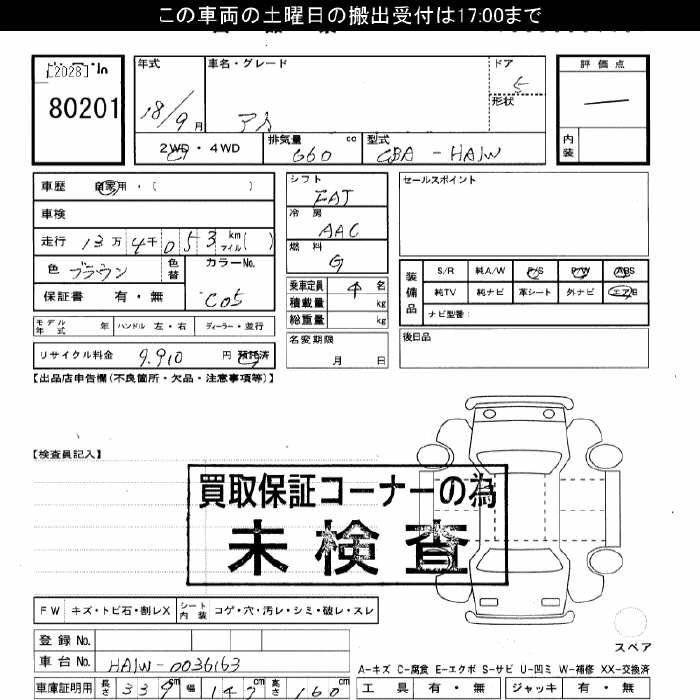 この車両の土曜日の搬出受付は17:00まで
[2028]
80201
年式
18/9月
2WD・4WD
車名・グレード
アイ
排気量 cc
660
型式
CBA-HA1W
ドア
5
形状
評価点
内装
車歴 自家用・( )
車検
走行 13万4千053km マイル( )
色 ブラウン 色替
カラーNo.
C05
保証書 有・無
モデル年式 年 ハンドル 左・右 ディーラー・並行
リサイクル料金 9.910 円 預託済
シフト
FAT
冷房
AAC
燃料
G
乗車定員 4 名
積載量 kg
総重量 kg
名変期限
月 日
セールスポイント
装備品
S/R 純A/W P/S P/W ABS
純TV 純ナビ 革シート 外ナビ エアB
ナビ型番:
後日品
【出品店申告欄(不良箇所・欠品・注意事項等)】
【検査員記入】
買取保証コーナーの為
未検査
FW キズ・トビ石・割レX シート内装 コゲ・穴・汚レ・シミ・破レ・スレ
登録No.
車台No. HA1W-0036163
車庫証明用 長さ 339cm 幅 147cm 高さ 160cm
スペア
A-キズ C-腐食 E-エクボ S-サビ U-凹ミ W-補修 XX-交換済
工具 有・無 ジャッキ 有・無